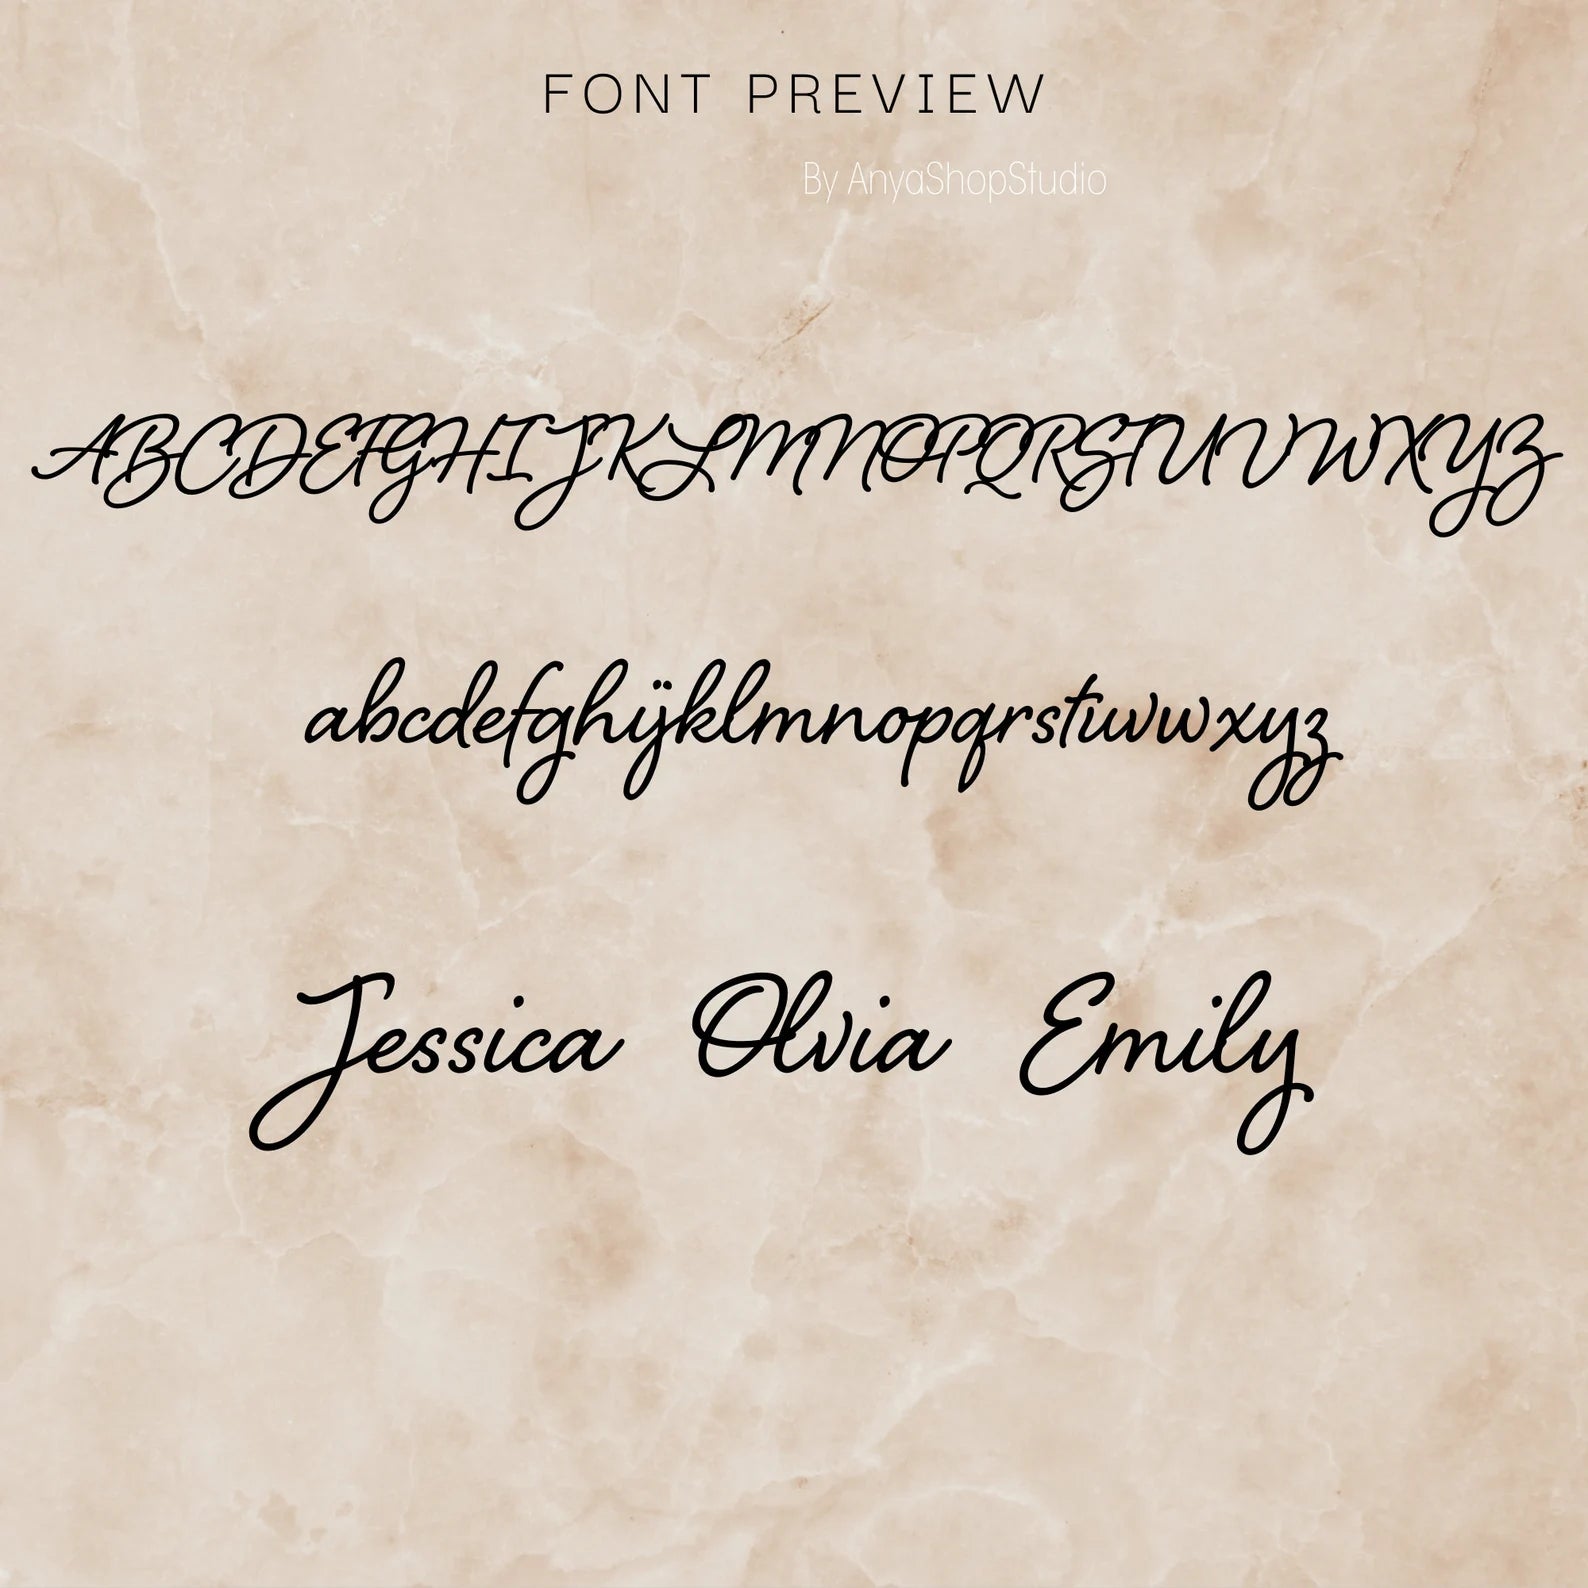 FONT PREVIEW
By AnyaShopStudio
ABCDEFGHIJKLMNOPQRSTUVWXYZ
abcdefghijklmnopqrstuvwxyz
Jessica Olvia Emily